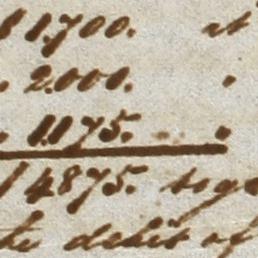 1,700.
2.000.
1.175.
4875. toge
the debit of